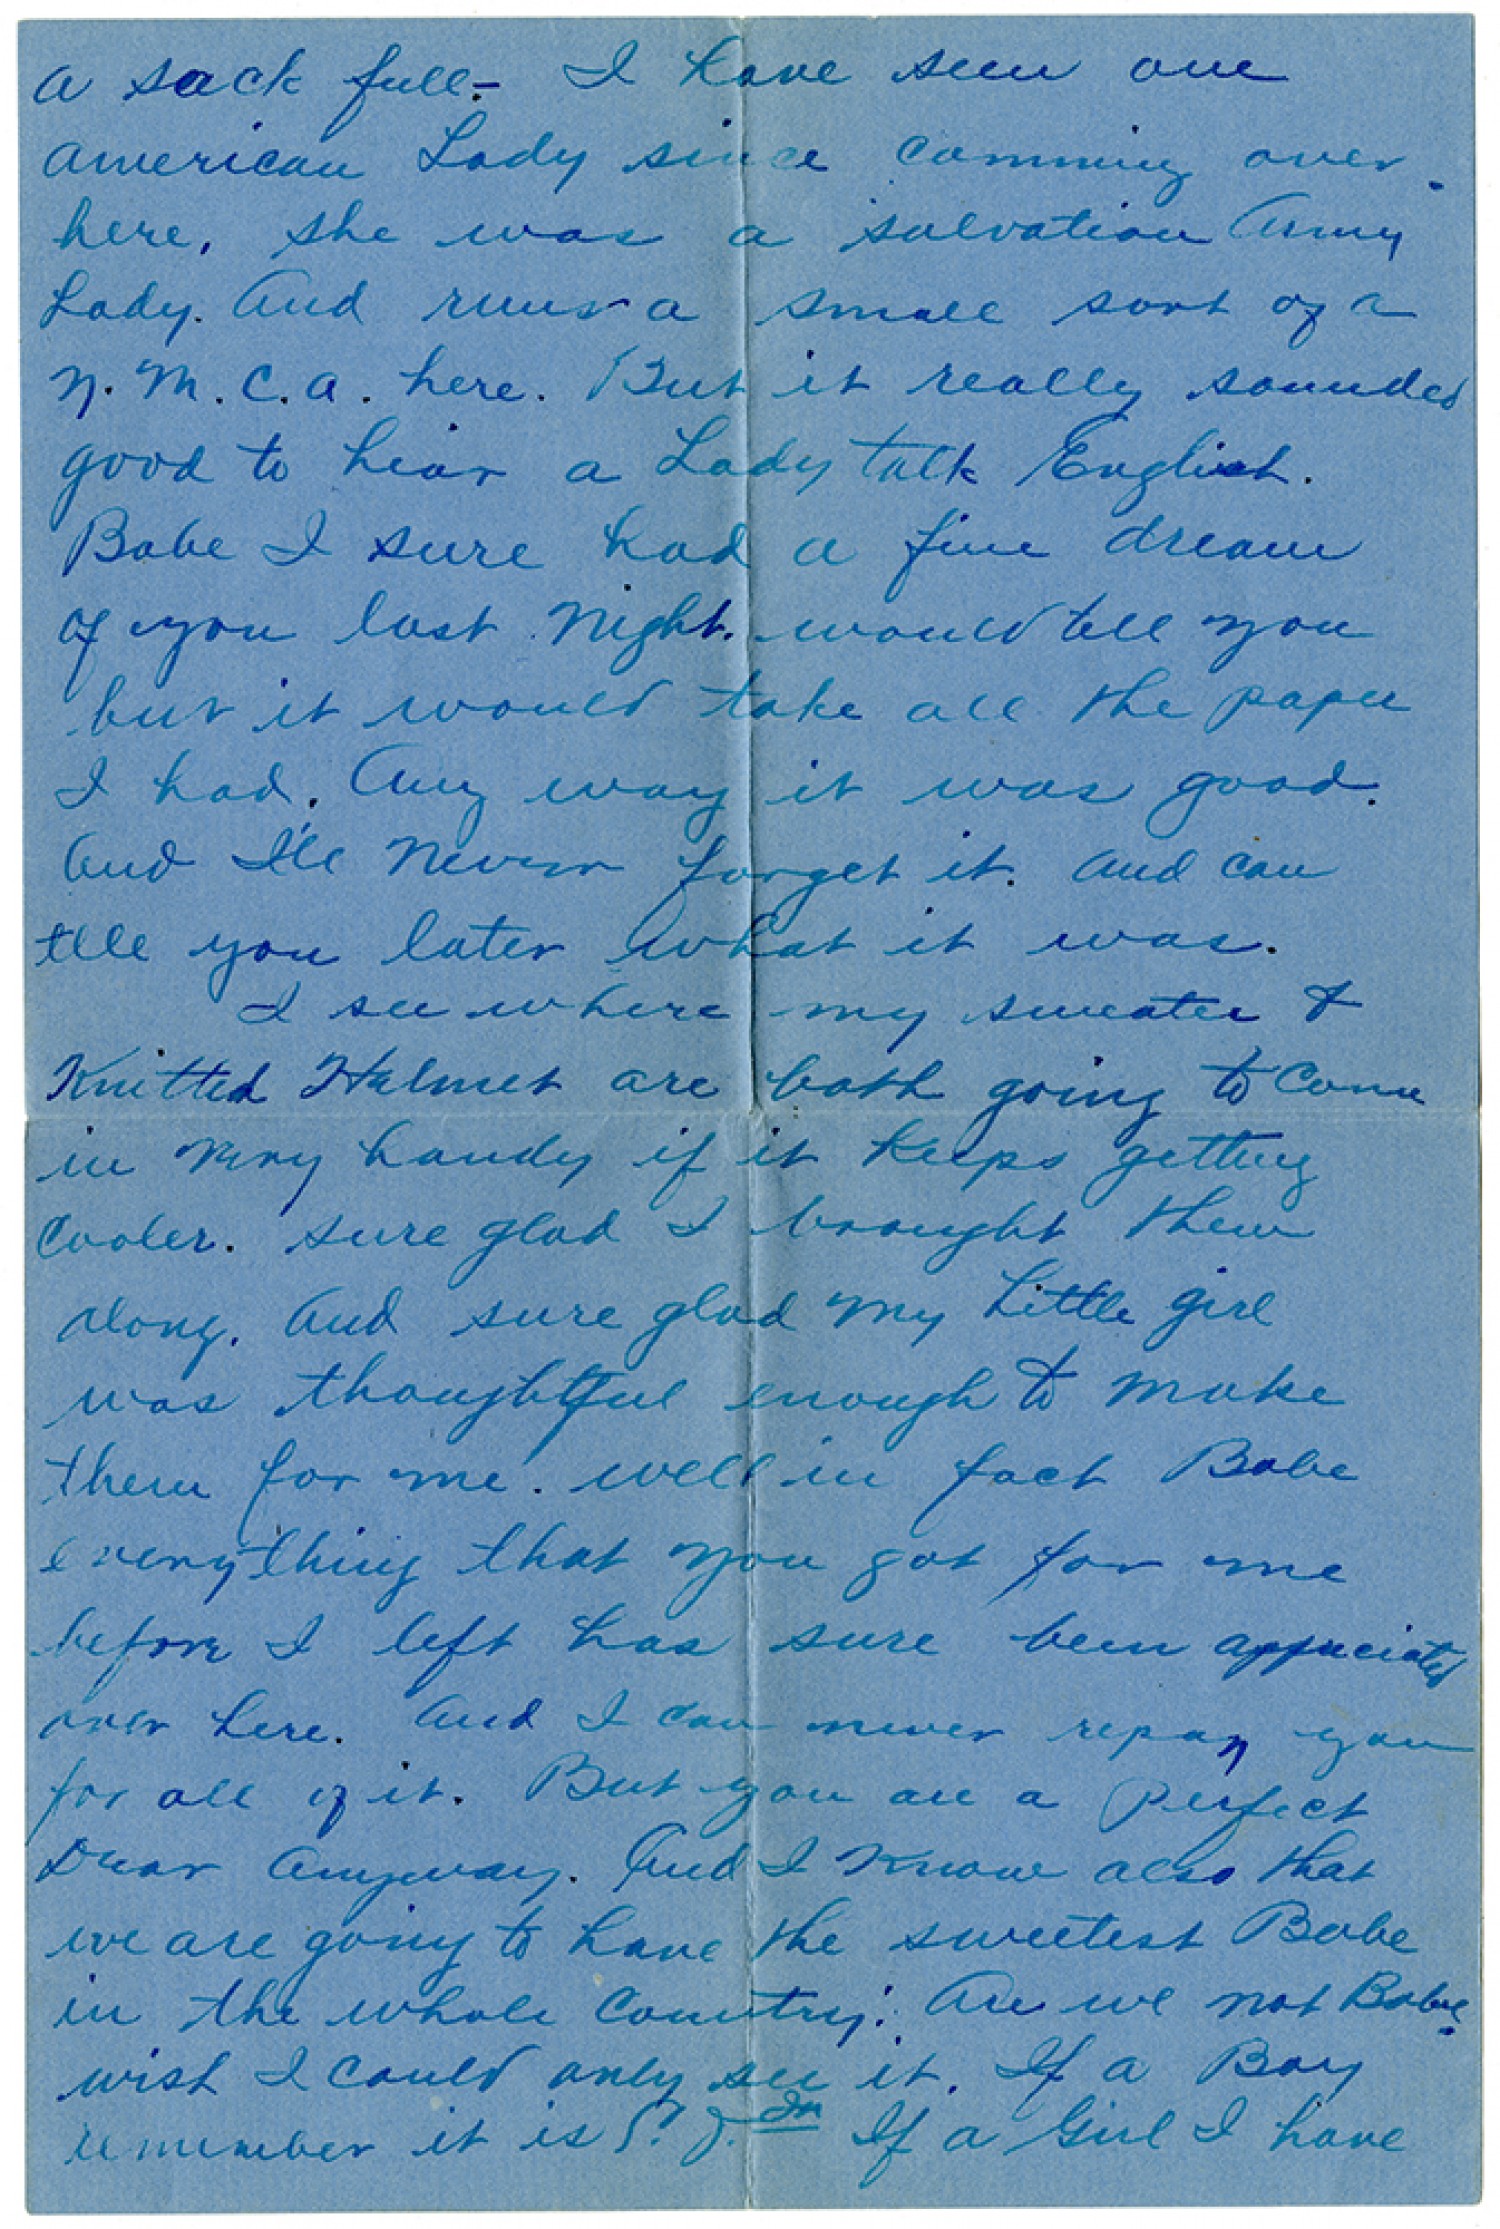 a sack full- I have seen one
american Lady since comming over
here. she was a salvation Army
Lady. And runs a small sort of a
Y.M.C.A. here. But it really sounded
good to hear a Lady talk English.
Babe I sure had a fine dream
of you last night. would tell you
but it would take all the paper
I had. Any way it was good.
And I'll Never forget it. and can
tell you later what it was.
I see where my sweater &
Knitted Helmet are both going to come
in very handy if it keeps getting
cooler. sure glad I brought them
along. And sure glad my Little girl
was thoughtful enough to make
them for me. well in fact Babe
everything that you got for me
before I left has sure been appreciated
over here. And I can never repay you
for all of it. But you are a Perfect
Dear Anyway. And I Know also that
we are going to have the sweetest Babe
in the whole Country. Are we not Babe.
wish I could only see it. If a Boy
remember it is J. Jr If a Girl I have